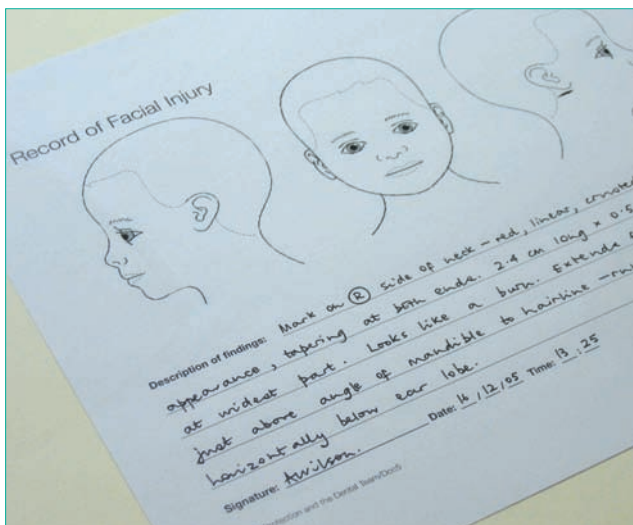 Record of Facial Injury
Description of findings: Mark on R side of neck – red, linear, crusted
appearance, tapering at both ends. 2.4 cm long × 0.5
at widest part. Looks like a burn. Extends
just above angle of mandible to hairline –
horizontally below ear lobe.
Signature: AWilson. Date: 16/12/05 Time: 13:25
and the Dental Team/Do